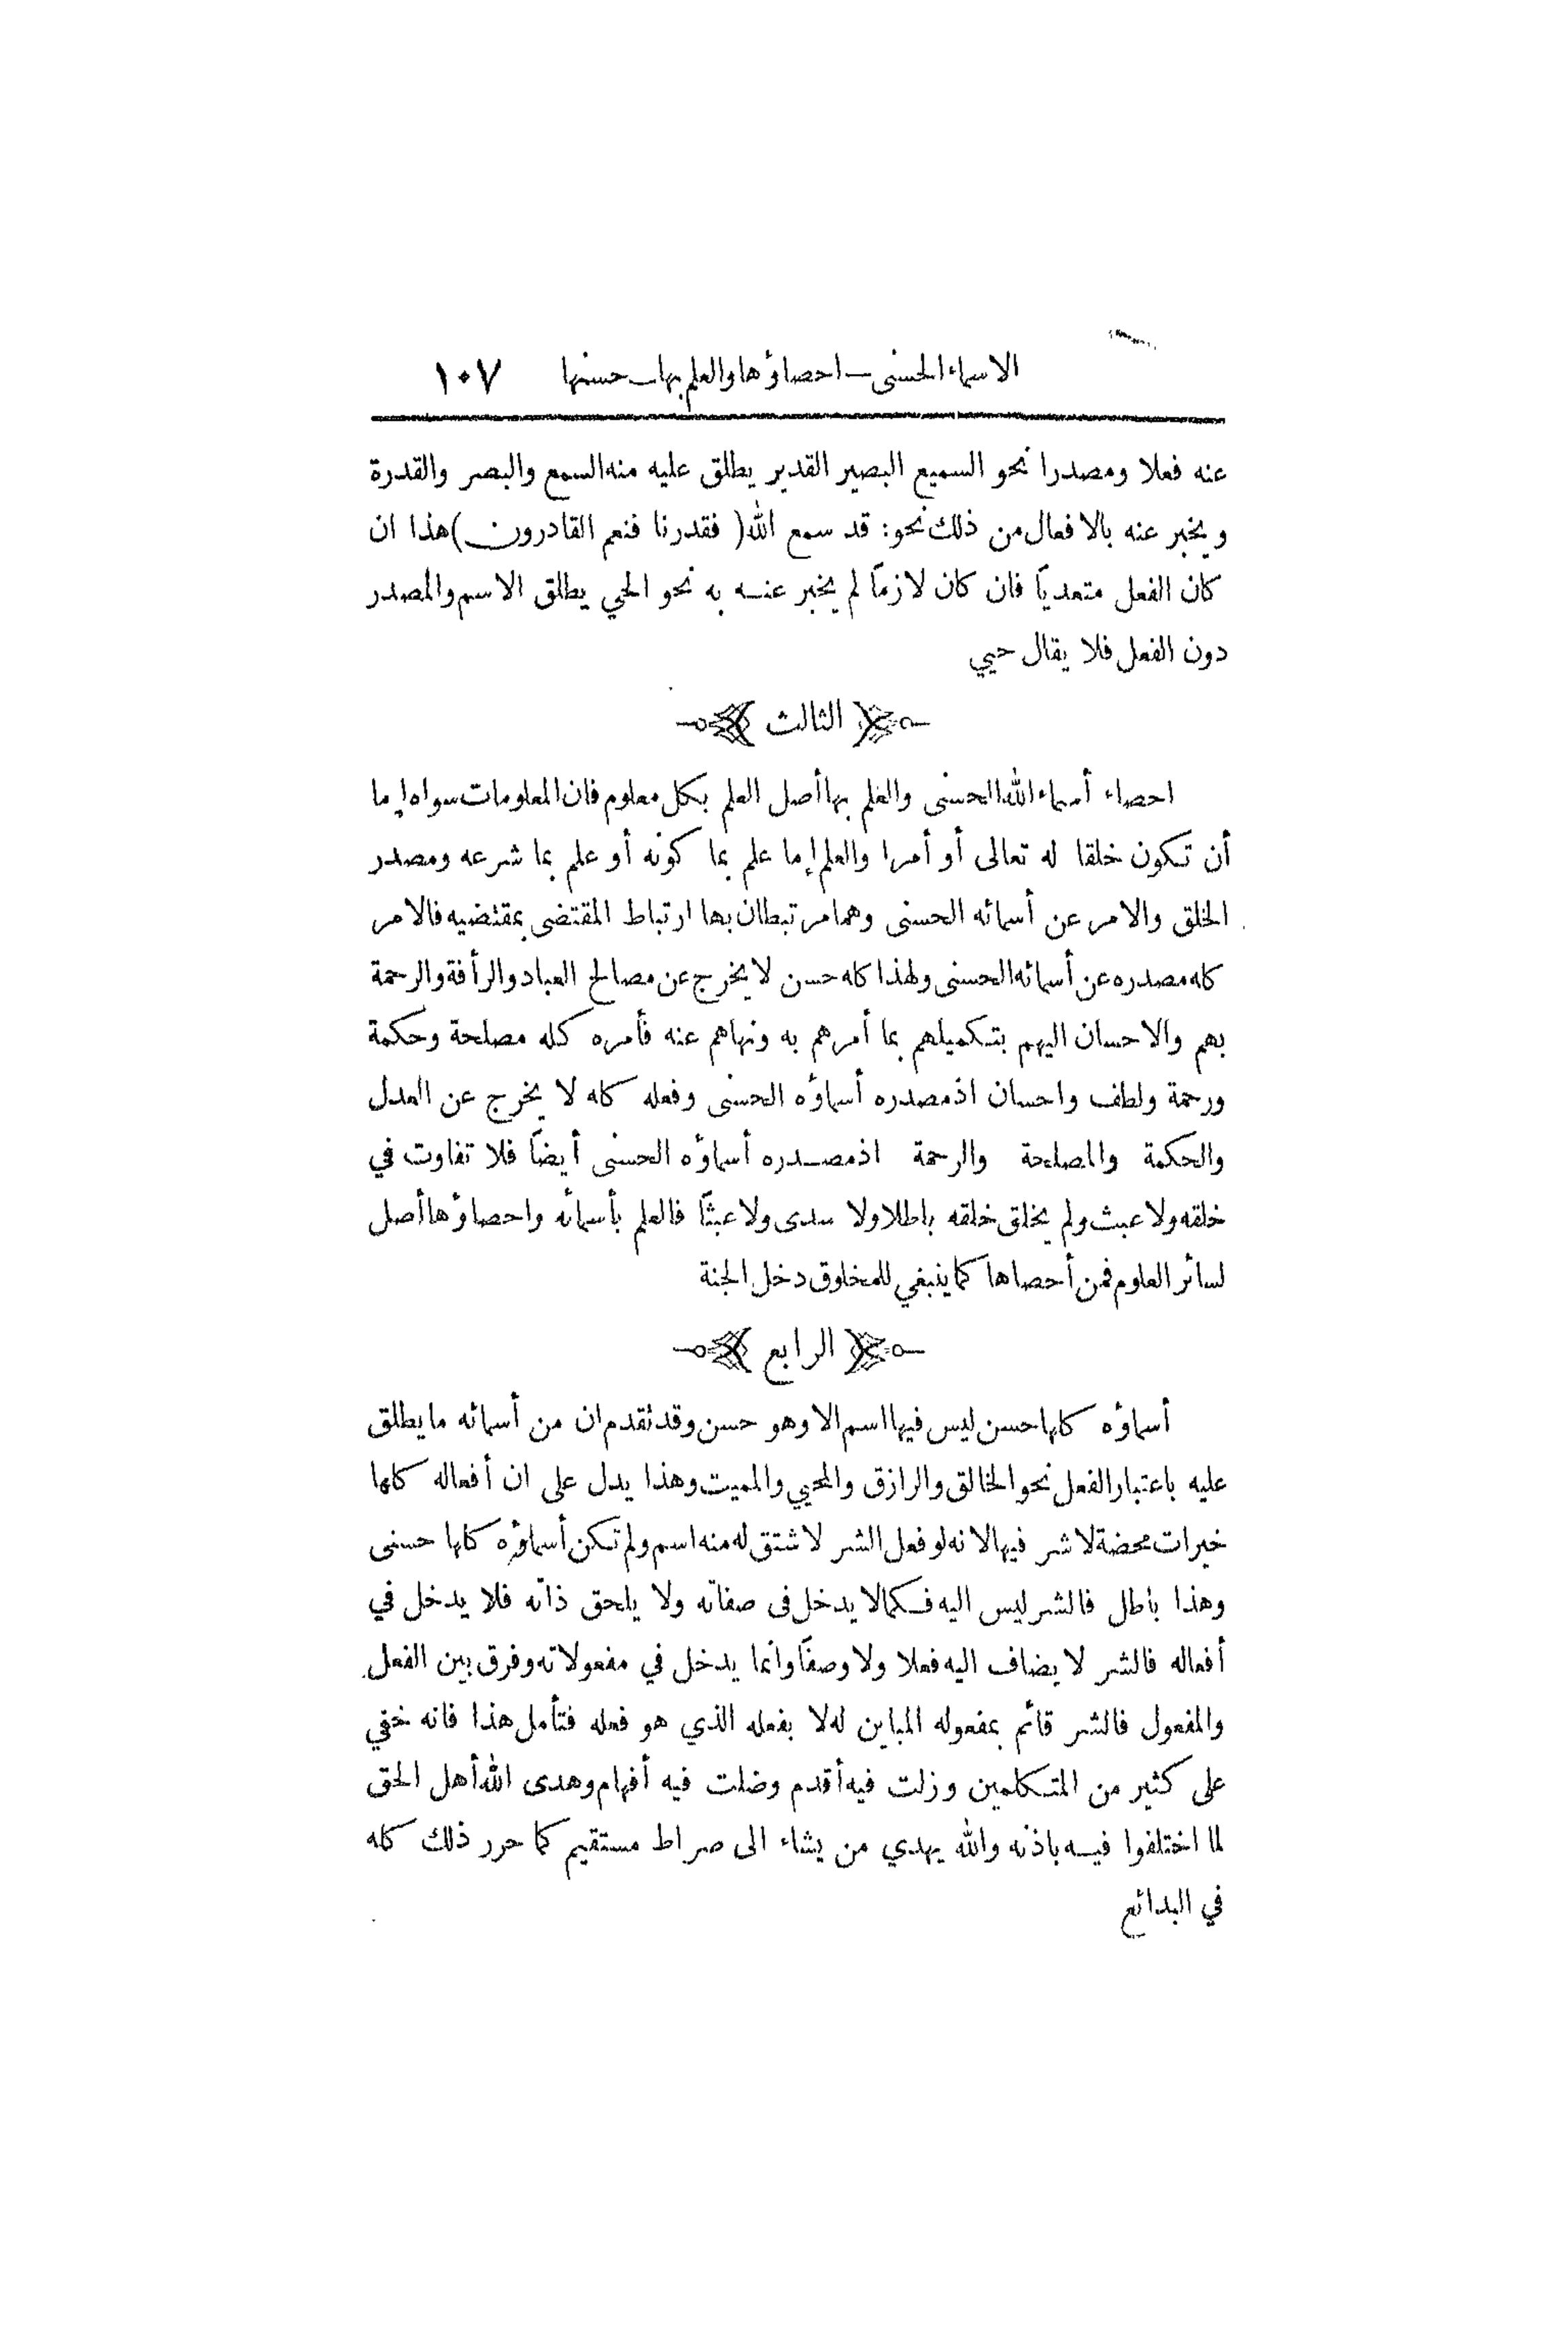 الاسماء الحسنى – احصاؤها والعلم بها – حسنها ١٠٧
عنه فعلا ومصدرا نحو السميع البصير القدير يطلق عليه منه السمع والبصر والقدرة
ويخبر عنه بالافعال من ذلك نحو: قد سمع الله (فقدرنا فنعم القادرون) هذا ان
كان الفعل متعديًا فان كان لازمًا لم يخبر عنه به نحو الحي يطلق الاسم والمصدر
دون الفعل فلا يقال حيي
الثالث
احصاء أسماء الله الحسنى والعلم بها أصل العلم بكل معلوم فان المعلومات سواه إما
أن تكون خلقا له تعالى أو أمرا والعلم إما علم بما كونه أو علم بما شرعه ومصدر
الخلق والامر عن أسمائه الحسنى وهما مرتبطان بها ارتباط المقتضى بمقتضيه فالامر
كله مصدره عن أسمائه الحسنى ولهذا كله حسن لا يخرج عن مصالح العباد والرأفة والرحمة
بهم والاحسان اليهم بتكميلهم بما أمرهم به ونهاهم عنه فأمره كله مصلحة وحكمة
ورحمة ولطف واحسان اذ مصدره أسماؤه الحسنى وفعله كله لا يخرج عن العدل
والحكمة والمصلحة والرحمة اذ مصدره أسماؤه الحسنى أيضًا فلا تفاوت في
خلقه ولا عبث ولم يخلق خلقه باطلا ولا سدى ولا عبثًا فالعلم بأسمائه واحصاؤها أصل
لسائر العلوم فمن أحصاها كما ينبغي للمخلوق دخل الجنة
الرابع
أسماؤه كلها حسن ليس فيها اسم الا وهو حسن وقد تقدم ان من أسمائه ما يطلق
عليه باعتبار الفعل نحو الخالق والرازق والمحيي والمميت وهذا يدل على ان أفعاله كلها
خيرات محضة لا شر فيها لانه لو فعل الشر لاشتق له منه اسم ولم تكن أسماؤه كلها حسنى
وهذا باطل فالشر ليس اليه فكما لا يدخل في صفاته ولا يلحق ذاته فلا يدخل في
أفعاله فالشر لا يضاف اليه فعلا ولا وصفًا وانما يدخل في مفعولاته وفرق بين الفعل
والمفعول فالشر قائم بمفعوله المباين له لا بفعله الذي هو فعله فتأمل هذا فانه خفي
على كثير من المتكلمين وزلت فيه أقدم وضلت فيه أفهام وهدى الله أهل الحق
لما اختلفوا فيه باذنه والله يهدي من يشاء الى صراط مستقيم كما حرر ذلك كله
في البدائع